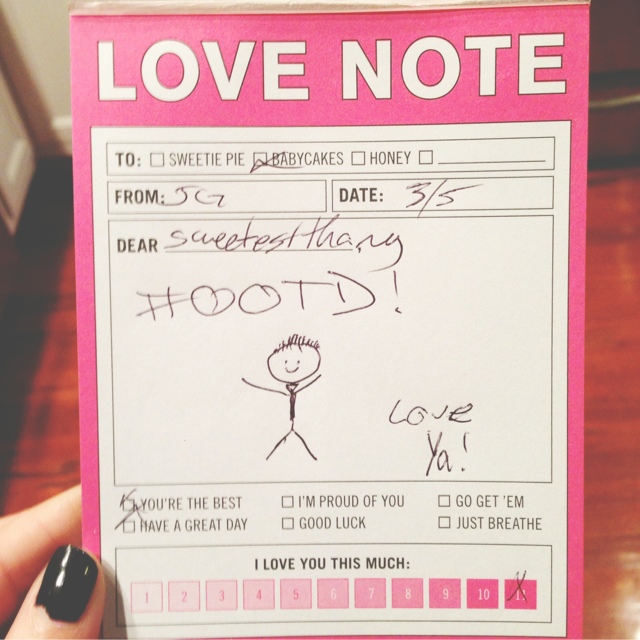 LOVE NOTE
TO: SWEETIE PIE BABYCAKES HONEY
FROM: JG DATE: 3/5
DEAR sweetest thang
#OOTD!
Love
Ya!
YOU'RE THE BEST I'M PROUD OF YOU GO GET 'EM
HAVE A GREAT DAY GOOD LUCK JUST BREATHE
I LOVE YOU THIS MUCH:
1 2 3 4 5 6 7 8 9 10 11